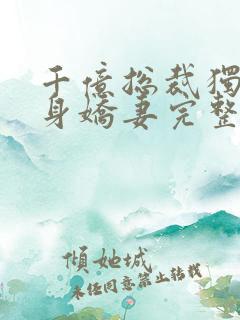 千億總裁獨
身嬌妻完整
傾她城
未經同意禁止轉載